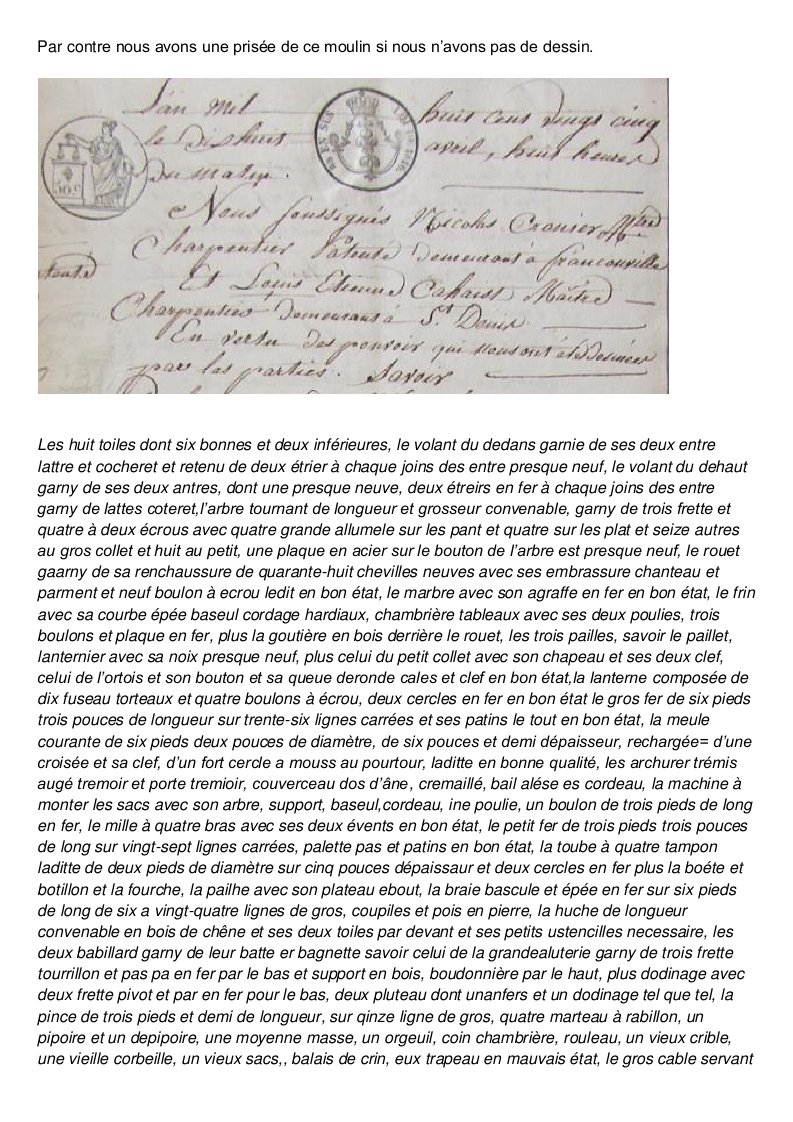 Par contre nous avons une prisée de ce moulin si nous n’avons pas de dessin.
L'an mil huit cent vingt cinq
le dix huit avril, huit heures
du matin.
50 C
Nous soussignés Nicolas Cranier Mtre
Charpentier Patenté demeurant à franconville
Et Louis Etienne Cahaist Maître
Charpentier demeurant à St Denis
En vertu des pouvoir qui nous ont été donnés
par les parties. Savoir
Les huit toiles dont six bonnes et deux inférieures, le volant du dedans garnie de ses deux entre
lattre et cocheret et retenu de deux étrier à chaque joins des entre presque neuf, le volant du dehaut
garny de ses deux antres, dont une presque neuve, deux étreirs en fer à chaque joins des entre
garny de lattes coteret,l’arbre tournant de longueur et grosseur convenable, garny de trois frette et
quatre à deux écrous avec quatre grande allumele sur les pant et quatre sur les plat et seize autres
au gros collet et huit au petit, une plaque en acier sur le bouton de l’arbre est presque neuf, le rouet
gaarny de sa renchaussure de quarante-huit chevilles neuves avec ses embrassure chanteau et
parment et neuf boulon à ecrou ledit en bon état, le marbre avec son agraffe en fer en bon état, le frin
avec sa courbe épée baseul cordage hardiaux, chambrière tableaux avec ses deux poulies, trois
boulons et plaque en fer, plus la goutière en bois derrière le rouet, les trois pailles, savoir le paillet,
lanternier avec sa noix presque neuf, plus celui du petit collet avec son chapeau et ses deux clef,
celui de l’ortois et son bouton et sa queue deronde cales et clef en bon état,la lanterne composée de
dix fuseau torteaux et quatre boulons à écrou, deux cercles en fer en bon état le gros fer de six pieds
trois pouces de longueur sur trente-six lignes carrées et ses patins le tout en bon état, la meule
courante de six pieds deux pouces de diamètre, de six pouces et demi dépaisseur, rechargée= d’une
croisée et sa clef, d’un fort cercle a mouss au pourtour, laditte en bonne qualité, les archurer trémis
augé tremoir et porte tremioir, couverceau dos d’âne, cremaillé, bail alése es cordeau, la machine à
monter les sacs avec son arbre, support, baseul,cordeau, ine poulie, un boulon de trois pieds de long
en fer, le mille à quatre bras avec ses deux évents en bon état, le petit fer de trois pieds trois pouces
de long sur vingt-sept lignes carrées, palette pas et patins en bon état, la toube à quatre tampon
laditte de deux pieds de diamètre sur cinq pouces dépaissaur et deux cercles en fer plus la boéte et
botillon et la fourche, la pailhe avec son plateau ebout, la braie bascule et épée en fer sur six pieds
de long de six a vingt-quatre lignes de gros, coupiles et pois en pierre, la huche de longueur
convenable en bois de chêne et ses deux toiles par devant et ses petits ustencilles necessaire, les
deux babillard garny de leur batte er bagnette savoir celui de la grandealuterie garny de trois frette
tourrillon et pas pa en fer par le bas et support en bois, boudonnière par le haut, plus dodinage avec
deux frette pivot et par en fer pour le bas, deux pluteau dont unanfers et un dodinage tel que tel, la
pince de trois pieds et demi de longueur, sur qinze ligne de gros, quatre marteau à rabillon, un
pipoire et un depipoire, une moyenne masse, un orgeuil, coin chambrière, rouleau, un vieux crible,
une vieille corbeille, un vieux sacs,, balais de crin, eux trapeau en mauvais état, le gros cable servant